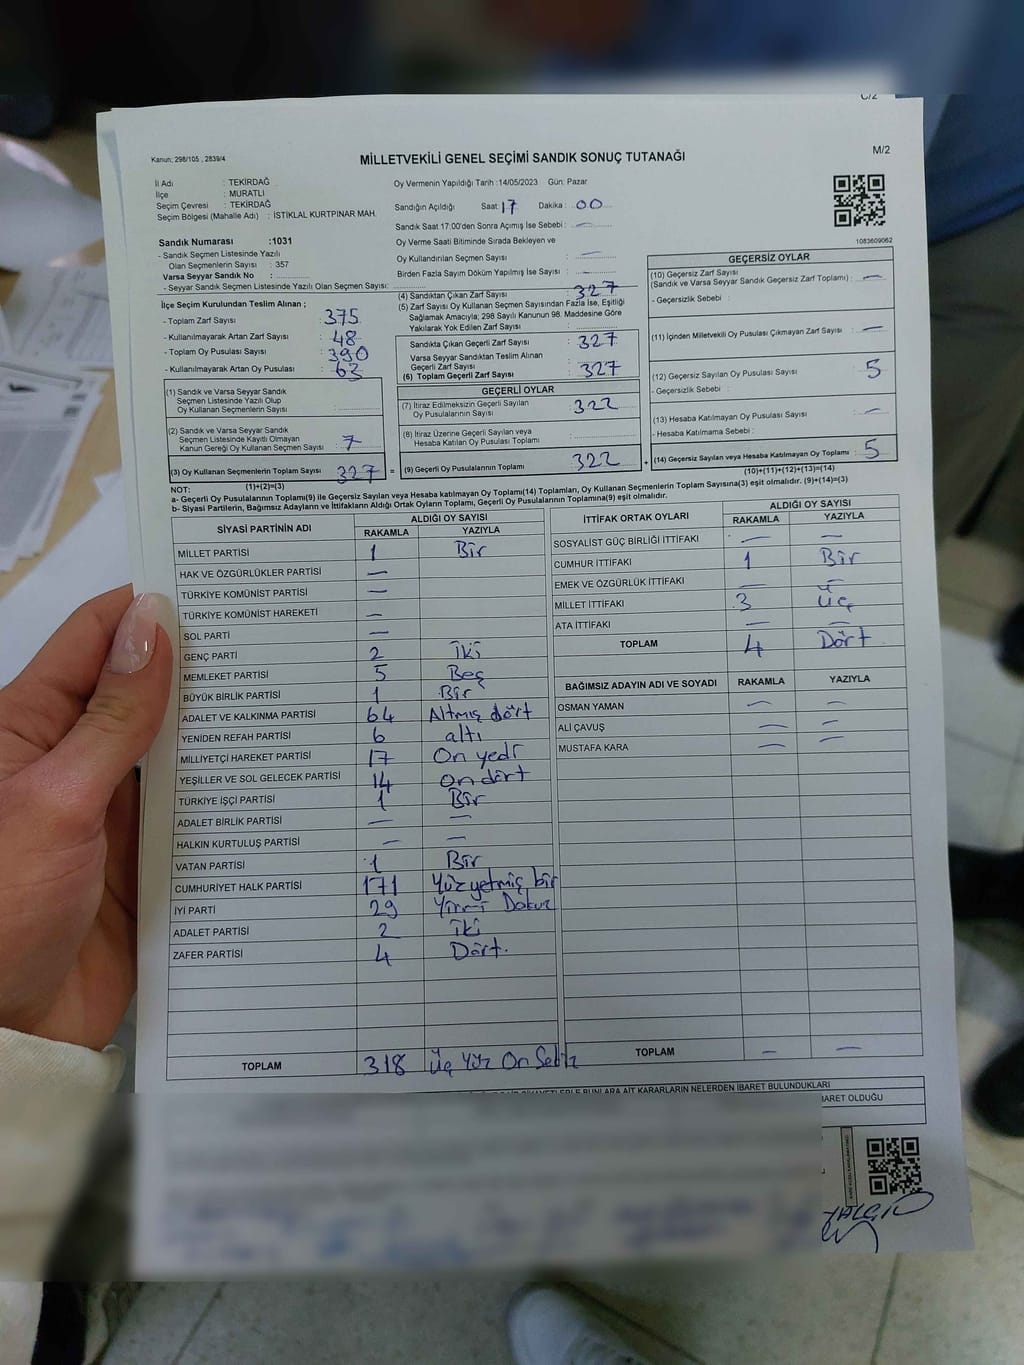 C/2
Kanun; 298/105 , 2839/4
MİLLETVEKİLİ GENEL SEÇİMİ SANDIK SONUÇ TUTANAĞI
M/2
İl Adı : TEKİRDAĞ
İlçe : MURATLI
Seçim Çevresi : TEKİRDAĞ
Seçim Bölgesi (Mahalle Adı) : İSTİKLAL KURTPINAR MAH.
Sandık Numarası :1031
- Sandık Seçmen Listesinde Yazılı
Olan Seçmenlerin Sayısı : 357
Varsa Seyyar Sandık No :
- Seyyar Sandık Seçmen Listesinde Yazılı Olan Seçmen Sayısı:
Oy Vermenin Yapıldığı Tarih :14/05/2023 Gün: Pazar
Sandığın Açıldığı Saat: 17 Dakika : 00
Sandık Saat 17:00'den Sonra Açımış İse Sebebi : —
Oy Verme Saati Bitiminde Sırada Bekleyen ve
Oy Kullandırılan Seçmen Sayısı : —
Birden Fazla Sayım Döküm Yapılmış İse Sayısı : —
1083609062
İlçe Seçim Kurulundan Teslim Alınan ;
- Toplam Zarf Sayısı : 375
- Kullanılmayarak Artan Zarf Sayısı : 48
- Toplam Oy Pusulası Sayısı : 390
- Kullanılmayarak Artan Oy Pusulası : 63
(1) Sandık ve Varsa Seyyar Sandık
Seçmen Listesinde Yazılı Olup
Oy Kullanan Seçmenlerin Sayısı :
(2) Sandık ve Varsa Seyyar Sandık
Seçmen Listesinde Kayıtlı Olmayan
Kanun Gereği Oy Kullanan Seçmen Sayısı : 7
(3) Oy Kullanan Seçmenlerin Toplam Sayısı : 327
(1)+(2)=(3)
(4) Sandıktan Çıkan Zarf Sayısı : 327
(5) Zarf Sayısı Oy Kullanan Seçmen Sayısından Fazla İse, Eşitliği
Sağlamak Amacıyla; 298 Sayılı Kanunun 98. Maddesine Göre
Yakılarak Yok Edilen Zarf Sayısı :
Sandıkta Çıkan Geçerli Zarf Sayısı : 327
Varsa Seyyar Sandıktan Teslim Alınan
Geçerli Zarf Sayısı :
(6) Toplam Geçerli Zarf Sayısı : 327
GEÇERLİ OYLAR
(7) İtiraz Edilmeksizin Geçerli Sayılan
Oy Pusulalarının Sayısı : 322
(8) İtiraz Üzerine Geçerli Sayılan veya
Hesaba Katılan Oy Pusulası Toplamı :
= (9) Geçerli Oy Pusulalarının Toplamı : 322
GEÇERSİZ OYLAR
(10) Geçersiz Zarf Sayısı
(Sandık ve Varsa Seyyar Sandık Geçersiz Zarf Toplamı) : —
- Geçersizlik Sebebi :
(11) İçinden Milletvekili Oy Pusulası Çıkmayan Zarf Sayısı : —
(12) Geçersiz Sayılan Oy Pusulası Sayısı : 5
- Geçersizlik Sebebi :
(13) Hesaba Katılmayan Oy Pusulası Sayısı : —
- Hesaba Katılmama Sebebi :
+ (14) Geçersiz Sayılan veya Hesaba Katılmayan Oy Toplamı : 5
(10)+(11)+(12)+(13)=(14)
NOT:
a- Geçerli Oy Pusulalarının Toplamı(9) ile Geçersiz Sayılan veya Hesaba katılmayan Oy Toplamı(14) Toplamları, Oy Kullanan Seçmenlerin Toplam Sayısına(3) eşit olmalıdır. (9)+(14)=(3)
b- Siyasi Partilerin, Bağımsız Adayların ve İttifakların Aldığı Ortak Oyların Toplamı, Geçerli Oy Pusulalarının Toplamına(9) eşit olmalıdır.
SİYASİ PARTİNİN ADI ALDIĞI OY SAYISI
RAKAMLA YAZIYLA
MİLLET PARTİSİ 1 Bir
HAK VE ÖZGÜRLÜKLER PARTİSİ —
TÜRKİYE KOMÜNİST PARTİSİ —
TÜRKİYE KOMÜNİST HAREKETİ —
SOL PARTİ —
GENÇ PARTİ 2 İki
MEMLEKET PARTİSİ 5 Beş
BÜYÜK BİRLİK PARTİSİ 1 Bir
ADALET VE KALKINMA PARTİSİ 64 Altmış dört
YENİDEN REFAH PARTİSİ 6 altı
MİLLİYETÇİ HAREKET PARTİSİ 17 On yedi
YEŞİLLER VE SOL GELECEK PARTİSİ 14 on dört
TÜRKİYE İŞÇİ PARTİSİ 1 Bir
ADALET BİRLİK PARTİSİ — —
HALKIN KURTULUŞ PARTİSİ — —
VATAN PARTİSİ 1 Bir
CUMHURİYET HALK PARTİSİ 171 Yüz yetmiş bir
İYİ PARTİ 29 Yirmi Dokuz
ADALET PARTİSİ 2 İki
ZAFER PARTİSİ 4 Dört.
TOPLAM 318 Üç Yüz On Sekiz
İTTİFAK ORTAK OYLARI ALDIĞI OY SAYISI
RAKAMLA YAZIYLA
SOSYALİST GÜÇ BİRLİĞİ İTTİFAKI — —
CUMHUR İTTİFAKI 1 Bir
EMEK VE ÖZGÜRLÜK İTTİFAKI — —
MİLLET İTTİFAKI 3 Üç
ATA İTTİFAKI — —
TOPLAM 4 Dört
BAĞIMSIZ ADAYIN ADI VE SOYADI RAKAMLA YAZIYLA
OSMAN YAMAN — —
ALİ ÇAVUŞ — —
MUSTAFA KARA — —
TOPLAM — —
BUNLARA AİT KARARLARIN NELERDEN İBARET BULUNDUKLARI
OLDUĞU